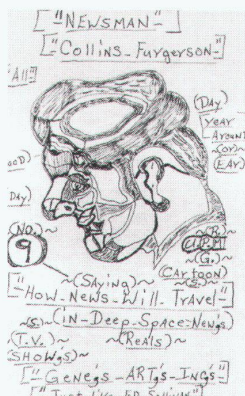 ["NEWSMAN"-]
["Collins-Furgerson"-]
"All"
(Day)
year
Around
(or)~
(EAr)
ooD)
Day)
(No.)~
9
~(R.)
~(G.)
(CArtoon)
~(Saying)~
["How-News-Will-Travel"]
~(in-Deep-Space-New's)
(T.V.)~
SHOW's)
~(Reals)
["-Gene's-ART's-ING's"]
["Just like